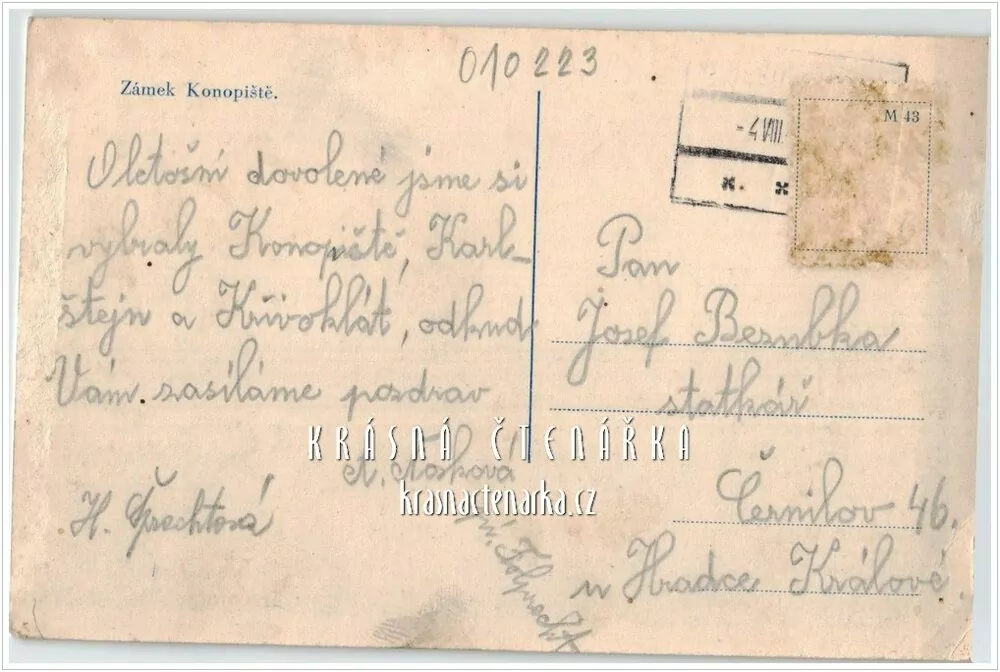 010223
Zámek Konopiště.
- 4 VIII
M 43
O letošní dovolené jsme si
vybraly Konopiště, Karl-
štejn a Křivoklát, odkud
Vám zasíláme pozdrav
KRÁSNÁ ČTENÁŘKA
krasnactenarka.cz
H.
Pan
Josef
statkář
Černilov 46.
u Hradce Králové